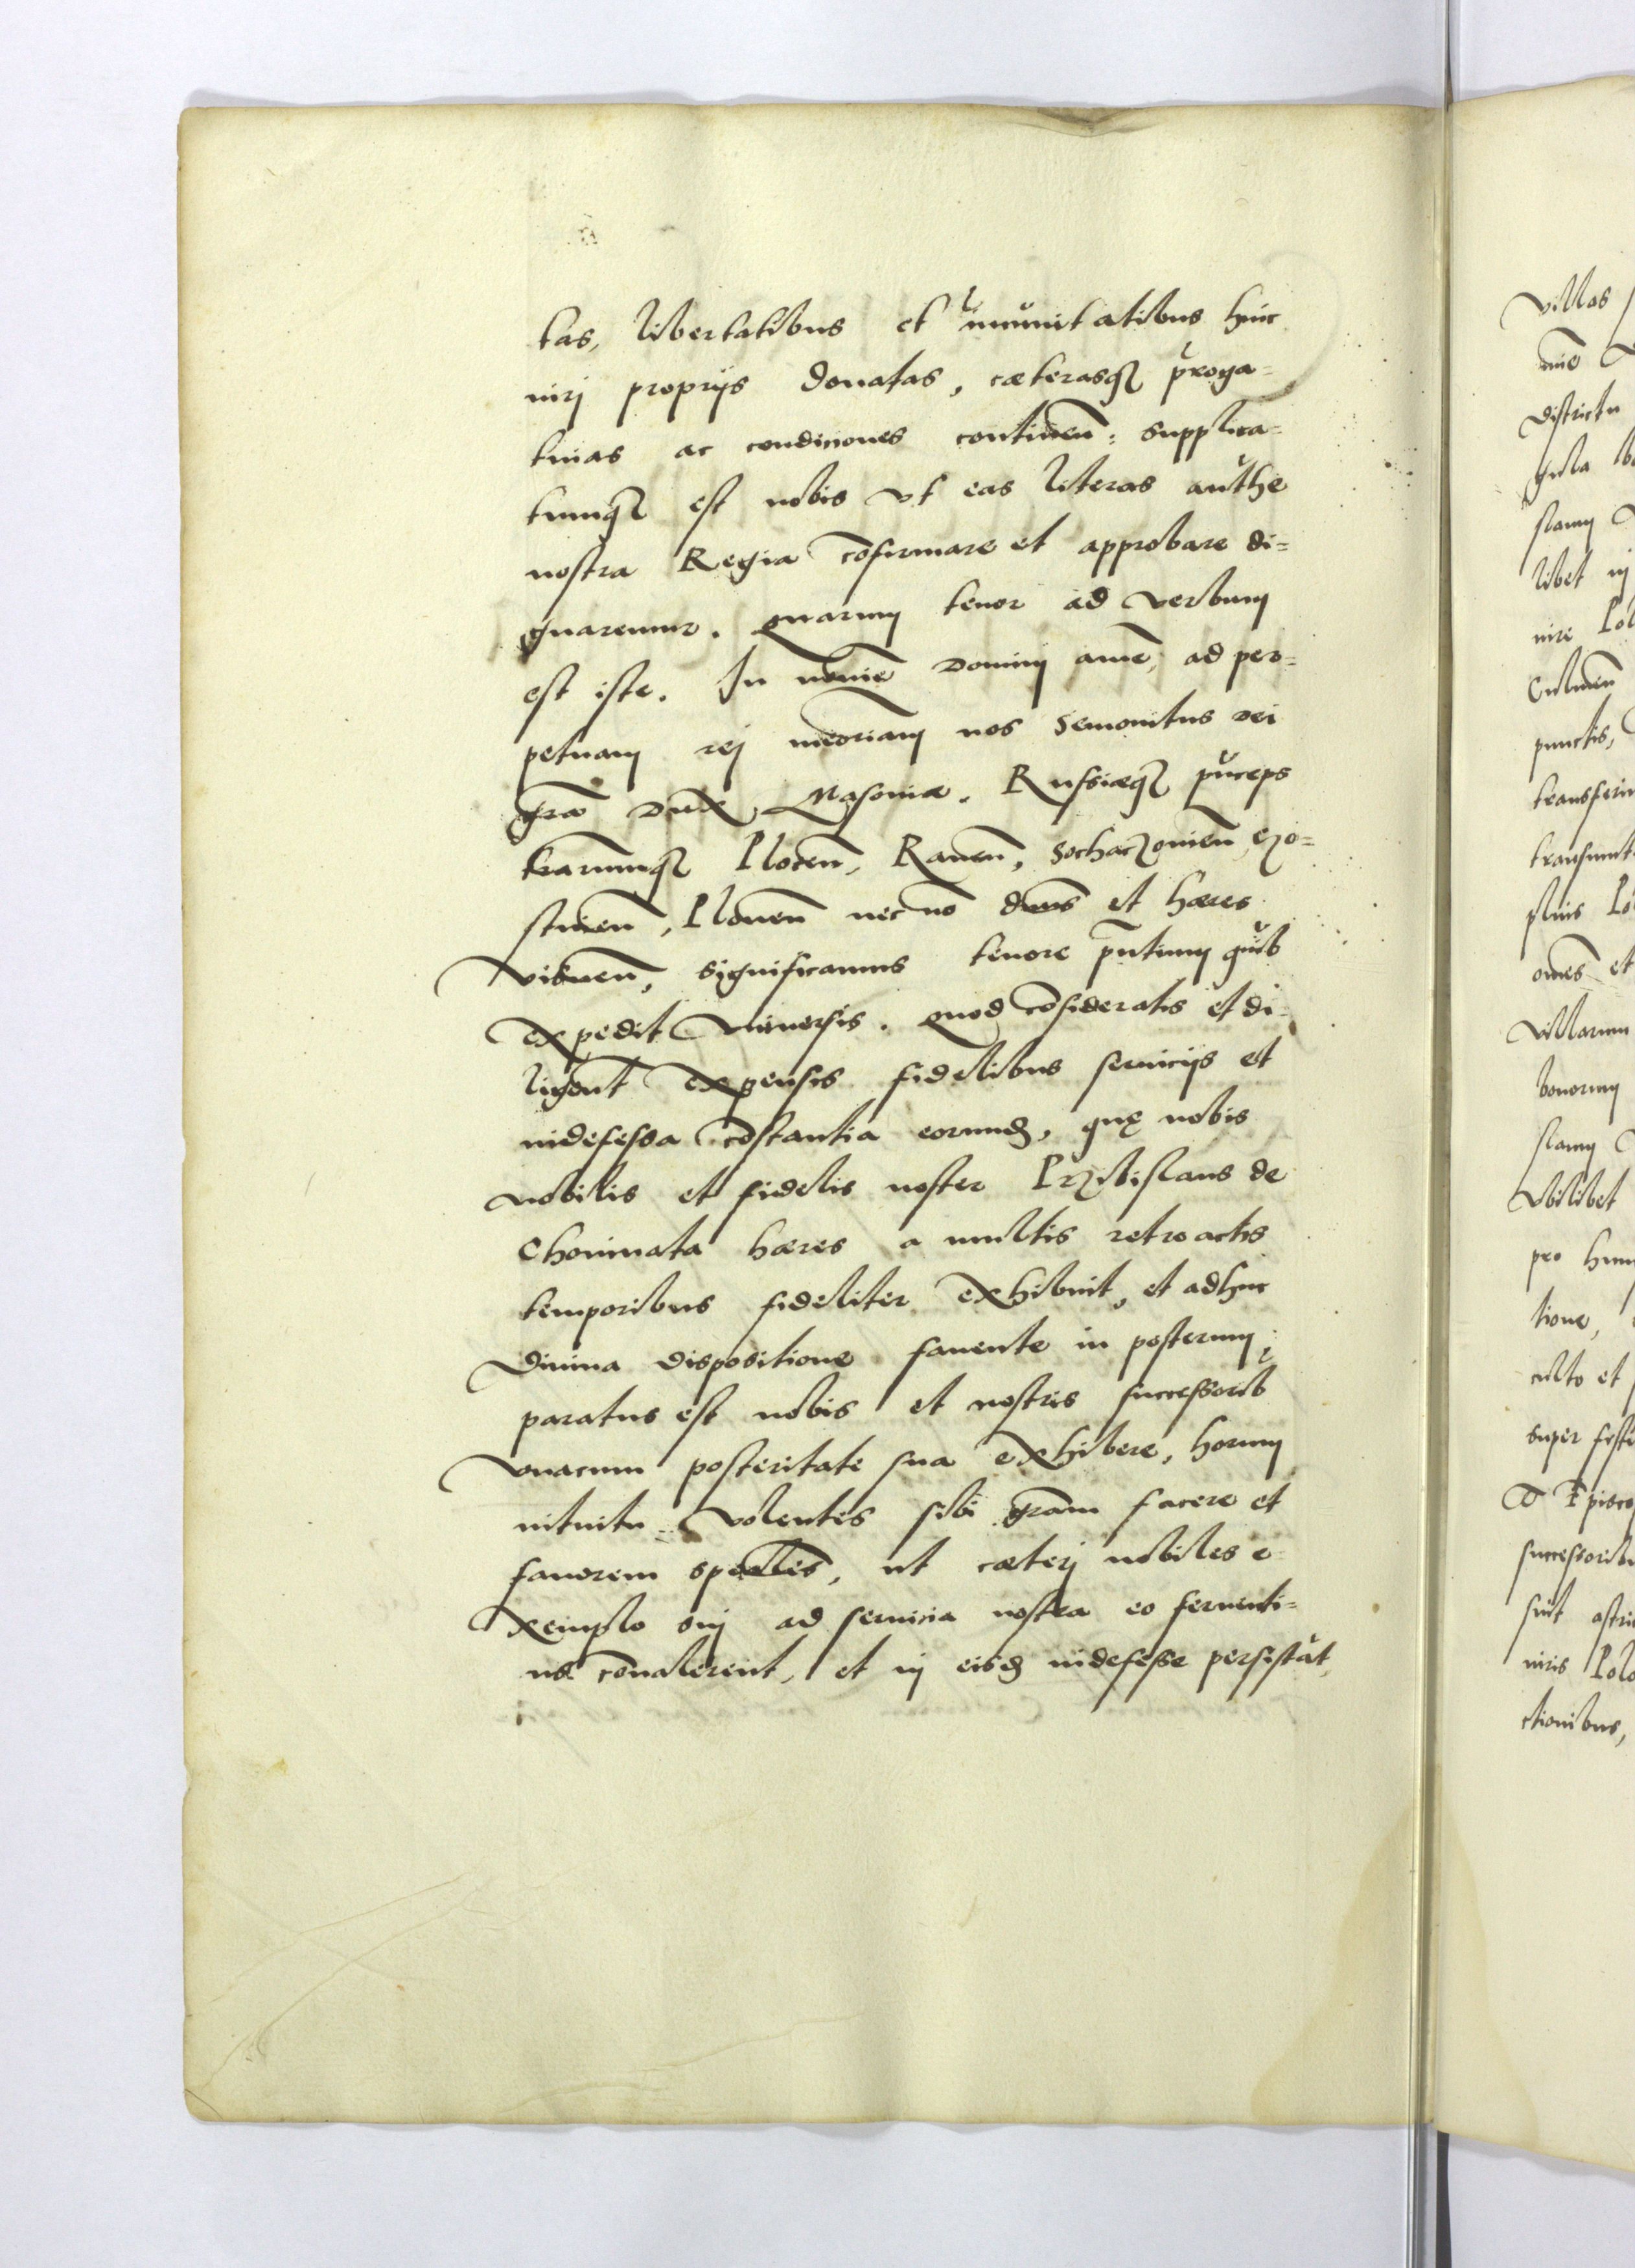 tas, libertatibus et imunitatibus huic
iuri propriis donatas, cæterasq₃ proga=
tiuas ac condiciones continen: supplica=
tumq₃ est nobis vt eas literas authe
nostra Regia cōfirmare et approbare di=
gnaremur. Quarum tenor ad verbum
est iste. In noīe Dominj amē, ad per=
petuam rej meoriam nos Semonitus Dei
gra Dux Masoniæ. Russiæq₃ priceps
trarumq₃ Plocen, Rauen, Sochaczouien, go=
stinen, Plonen nec no dnus et hæres
visnen, significamus tenore pntium quib
expedit vniuersis. Quod cōsideratis et di=
ligent expensis fidelibus seruicijs et
indefessa cōstantia eorund, quę nobis
nobilis et fidelis noster Przibislaus de
Chonimata hæres a multis retroactis
temporibus fideliter exhibuit, et adhuc
Diuina dispositione fauente in posterum,
paratus est nobis et nostris successorib
vnacum posteritate sua exhibere, horum
intuitu volentes sibi gram facere et
fauorem spealem, ut cæterj nobiles e=
xemplo suj ad seruicia nostra eo feruenti=
us cōualerent, et in eisd indefesse persistāt,
villas
Districtu
slamy
libet in
Culmen
punctis,
omes et
villarum
bonorum
slamy
Vbilibet
pro hui
tione,
culto et
super festi
successorib
sint astri
iuris Polo
ctionibus,